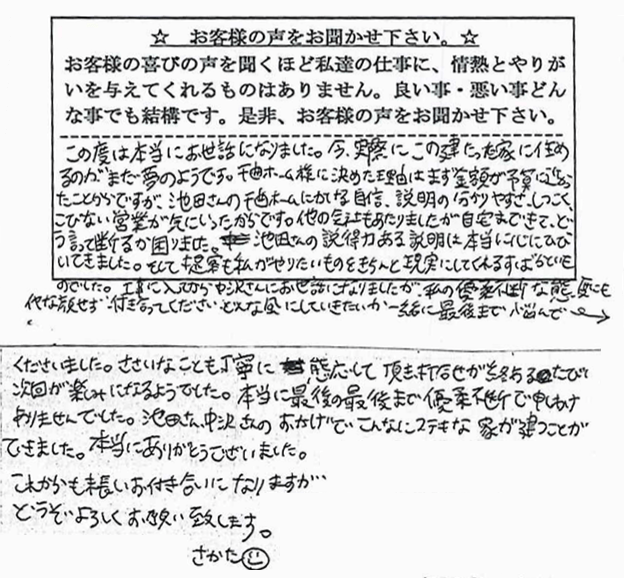 ☆ お客様の声をお聞かせ下さい。☆
お客様の喜びの声を聞くほど私達の仕事に、情熱とやりが
いを与えてくれるものはありません。良い事・悪い事どん
な事でも結構です。是非、お客様の声をお聞かせ下さい。
この度は本当にお世話になりました。今、実際にこの建たった家に住め
るのがまだ夢のようです。ホーム様に決めた理由はまず金額が予算に近かっ
たことからですが、池田さんのホームにかける自信、説明の分かりやすさ、しつこく、
こびない営業が気にいったからです。他の会社もあたりましたが自宅まできて、ど
う言って断るか困りました。池田さんの説得力ある説明は本当に心にひび
いてきました。そして提案も私がやりたいものをきちんと現実にしてくれるすばらしいも
のでした。工事に入ってから中沢さんにお世話になりましたが、私の優柔不断な態度にも
イヤな顔せず 付き合ってください どんな風にしていきたいか一緒に最後まで悩んで→
くださいました。ささいなことも丁寧に 態応して頂き、打合せが終わるたびに
次回が楽しみになるようでした。本当に最後の最後まで優柔不断で申しわけ
ありませんでした。池田さん、中沢さんのおかげでこんなにステキな家が建つことが
できました。本当にありがとうございました。
これからも長いお付き合いになりますが…
どうぞよろしくお願い致します。
さかた☺